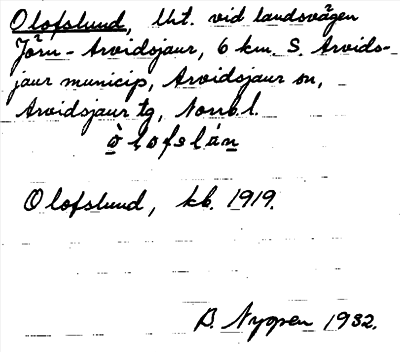 Olofslund, lht. vid landsvägen
Jörn - Arvidsjaur, 6 km. S. Arvids-
jaur municip, Arvidsjaur sn,
Arvidsjaur tg, Norrb. l.
òlofslán
Olofslund, kb. 1919.
B. Nygren 1932.